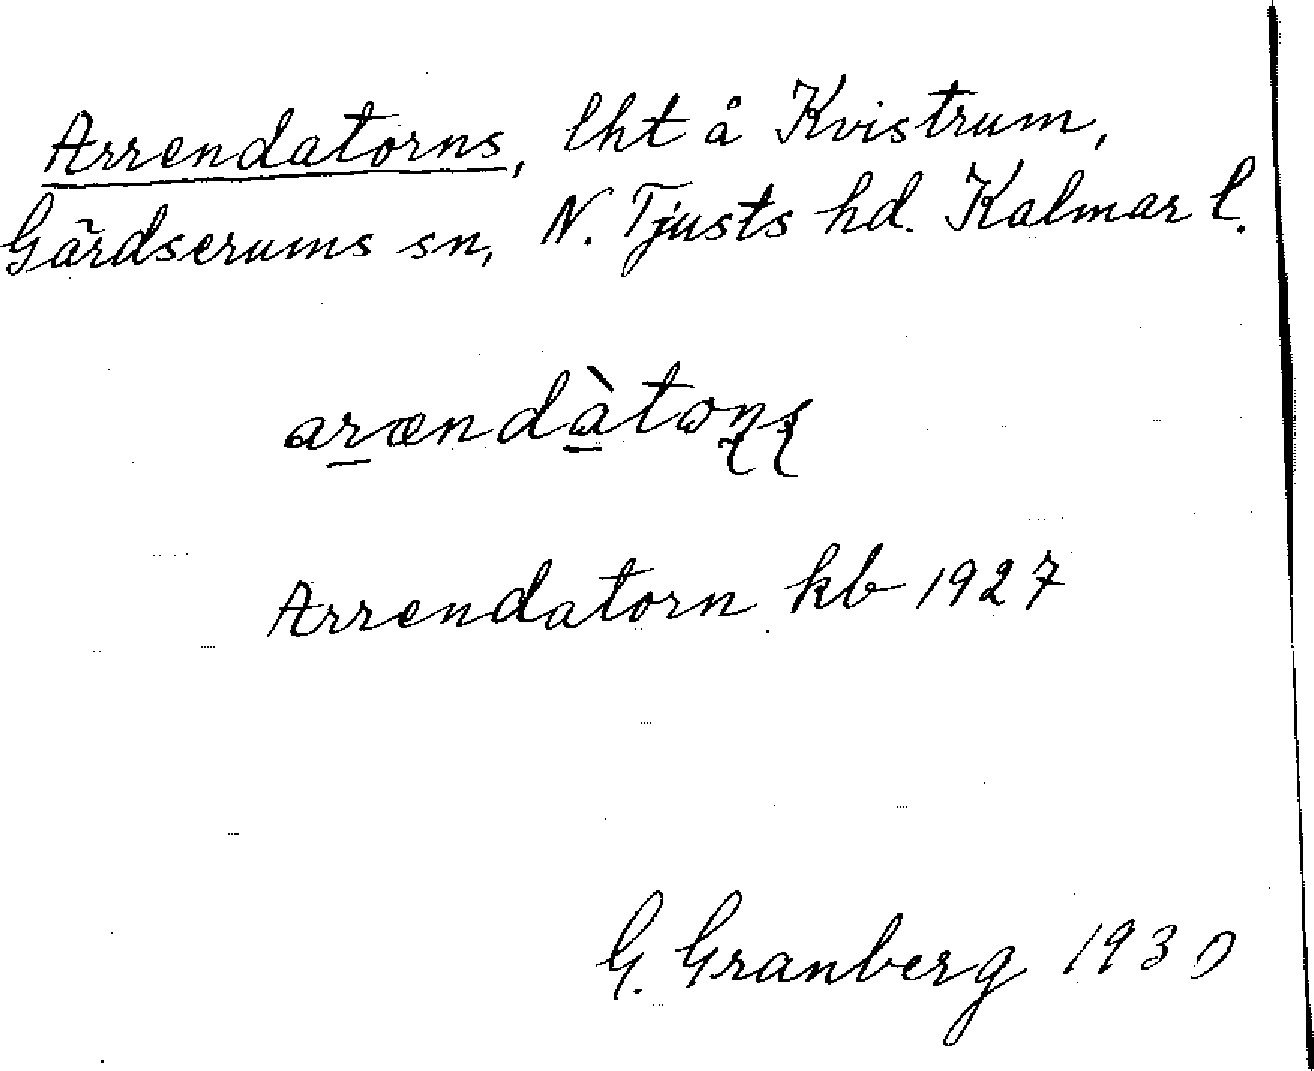 Arrendatorns, lht å Kvistrum,
Gärdserums sn, N. Tjusts hd. Kalmar l.
arændàtɷɳʂ
Arrendatorn kb 1927
G. Granberg 1930